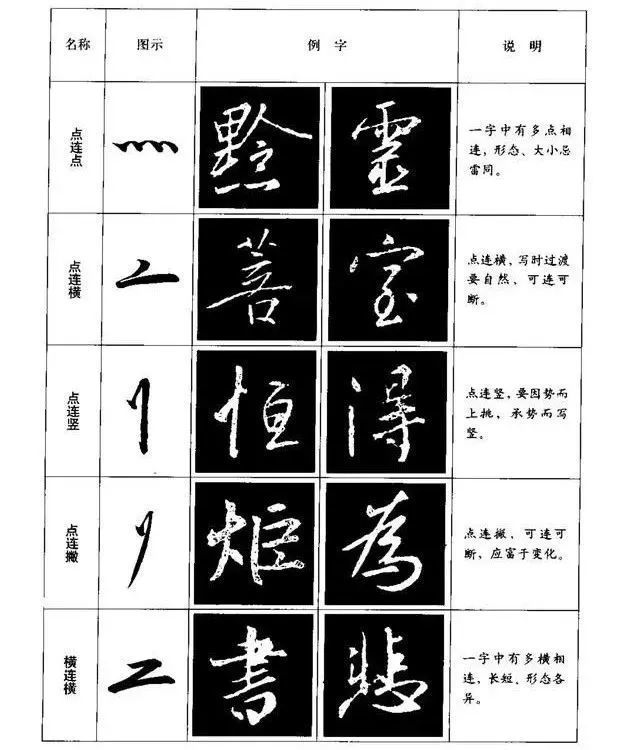 名称 图示 例 字 说 明
点连点 黔 靈 一字中有多点相
连，形态、大小忌
雷同。
点连横 菩 室 点连横，写时过渡
要自然、可连可
断。
点连竖 恒 得 点连竖，要因势而
上挑，承势而写
竖。
点连撇 炬 為 点连撇，可连可
断，应富于变化。
横连横 書 悲 一字中有多横相
连，长短、形态各
异。